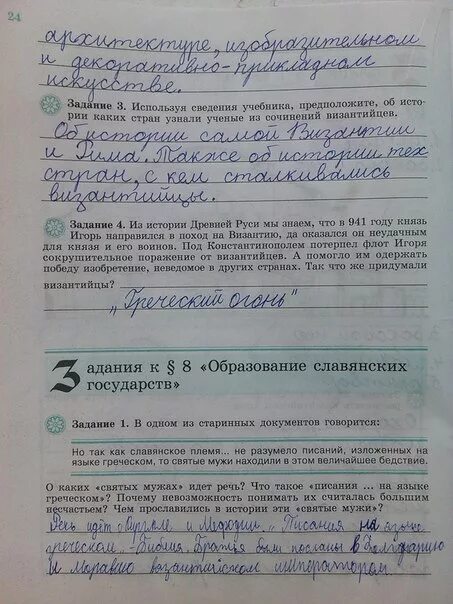 24
архитектуре, изобразительном
и декоративно-прикладном
искусстве.
Задание 3. Используя сведения учебника, предположите, об исто-
рии каких стран узнали ученые из сочинений византийцев.
Об истории самой Византии
и Рима. Также об истории тех
стран, с кем сталкивались
византийцы.
Задание 4. Из истории Древней Руси мы знаем, что в 941 году князь
Игорь направился в поход на Византию, да оказался он неудачным
для князя и его воинов. Под Константинополем потерпел флот Игоря
сокрушительное поражение от византийцев. А помогло им одержать
победу изобретение, неведомое в других странах. Так что же придумали
византийцы?
„Греческий огонь"
Задания к § 8 «Образование славянских
государств»
Задание 1. В одном из старинных документов говорится:
Но так как славянское племя... не разумело писаний, изложенных на
языке греческом, то святые мужи находили в этом величайшее бедствие.
О каких «святых мужах» идет речь? Что такое «писания ... на языке
греческом»? Почему невозможность понимать их считалась большим
несчастьем? Чем прославились в истории эти «святые мужи»?
Речь идёт о Кирилле и Мефодии. „Писания на языке
греческом - Библия. Братья были посланы в Болгарию
и Моравию византийском императором